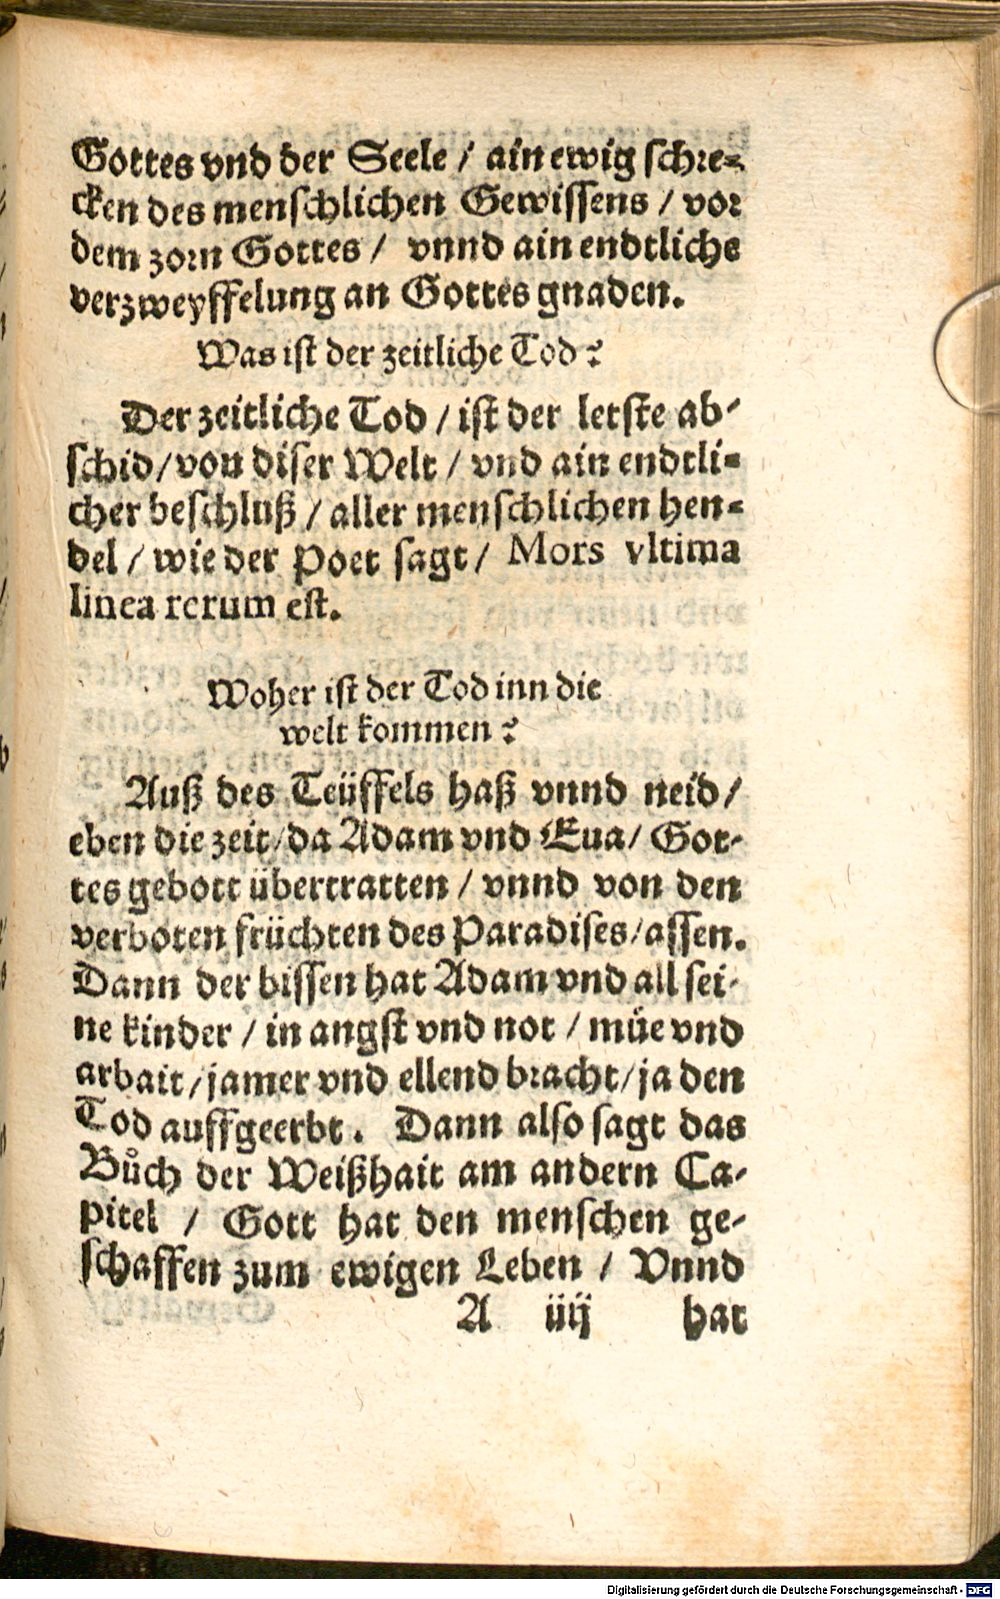 Gottes vnd der Seele / ain ewig schre=
cken des menschlichen Gewissens / vor
dem zorn Gottes / vnnd ain endtliche
verzweyffelung an Gottes gnaden.
Was ist der zeitliche Tod?
Der zeitliche Tod / ist der letste ab-
schid / von diser Welt / vnd ain endtli=
cher beschluß / aller menschlichen hen=
del / wie der Poet sagt / Mors vltima
linea rerum est.
Woher ist der Tod inn die
welt kommen?
Auß des Teüffels haß vnnd neid /
eben die zeit / da Adam vnd Eua / Got-
tes gebott übertratten / vnnd von den
verboten früchten des Paradises / assen.
Dann der bissen hat Adam vnd all sei-
ne kinder / in angst vnd not / müe vnd
arbait / jamer vnd ellend bracht / ja den
Tod auffgeerbt. Dann also sagt das
Bůch der Weißhait am andern Ca-
pitel / Gott hat den menschen ge-
schaffen zum ewigen Leben / Vnnd
A iiij hat
Digitalisierung gefördert durch die Deutsche Forschungsgemeinschaft - DFG